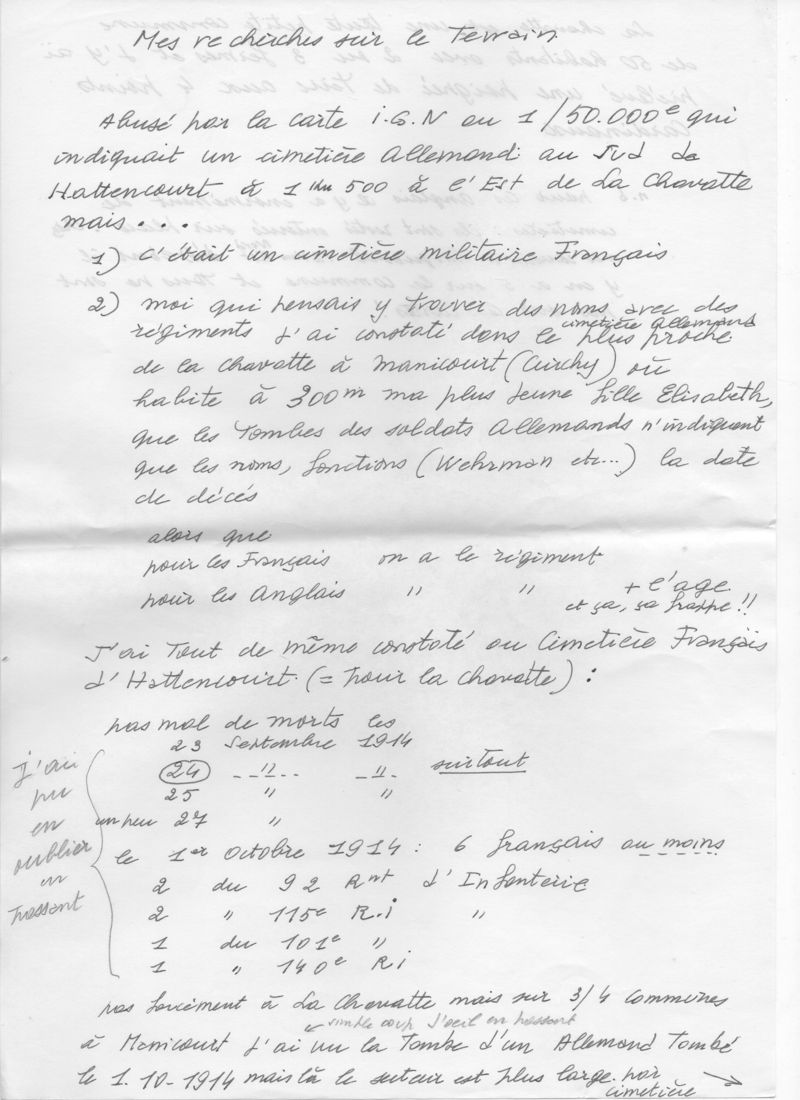 Mes recherches sur le Terrain
Abusé par la carte I.G.N au 1/50.000e qui
indiquait un cimetière Allemand au Sud de
Hattencourt à 1 km 500 à l'Est de La Chavatte
mais...
1) c'était un cimetière militaire Français
2) moi qui pensais y trouver des noms avec des
régiments J'ai constaté dans le cimetière Allemand plus proche
de la Chavatte à Manicourt (Curchy) où
habite à 300m ma plus jeune fille Elisabeth,
que les Tombes des soldats Allemands n'indiquent
que les noms, fonctions (Wehrman etc...) la date
de décés
alors que
pour les Français on a le régiment
pour les Anglais " " + l'age
et ça, ça frappe !!
J'ai Tout de même constaté au Cimetière Français
d'Hattencourt (= pour la Chavatte) :
pas mal de morts les
23 Septembre 1914
24 -"- -"- surtout
25 " "
un peu 27 "
le 1er Octobre 1914 : 6 français au moins
2 du 92 Rmt d'Infanterie
2 " 115e R.i "
1 du 101e "
1 " 140e Ri
j'ai
pu
en
oublier
en
passant
pas forcément à La Chavatte mais sur 3/4 communes
simple coup d'oeil en passant
à Manicourt J'ai vu la Tombe d'un Allemand Tombé
le 1.10-1914 mais là le secteur est plus large par
cimetière →